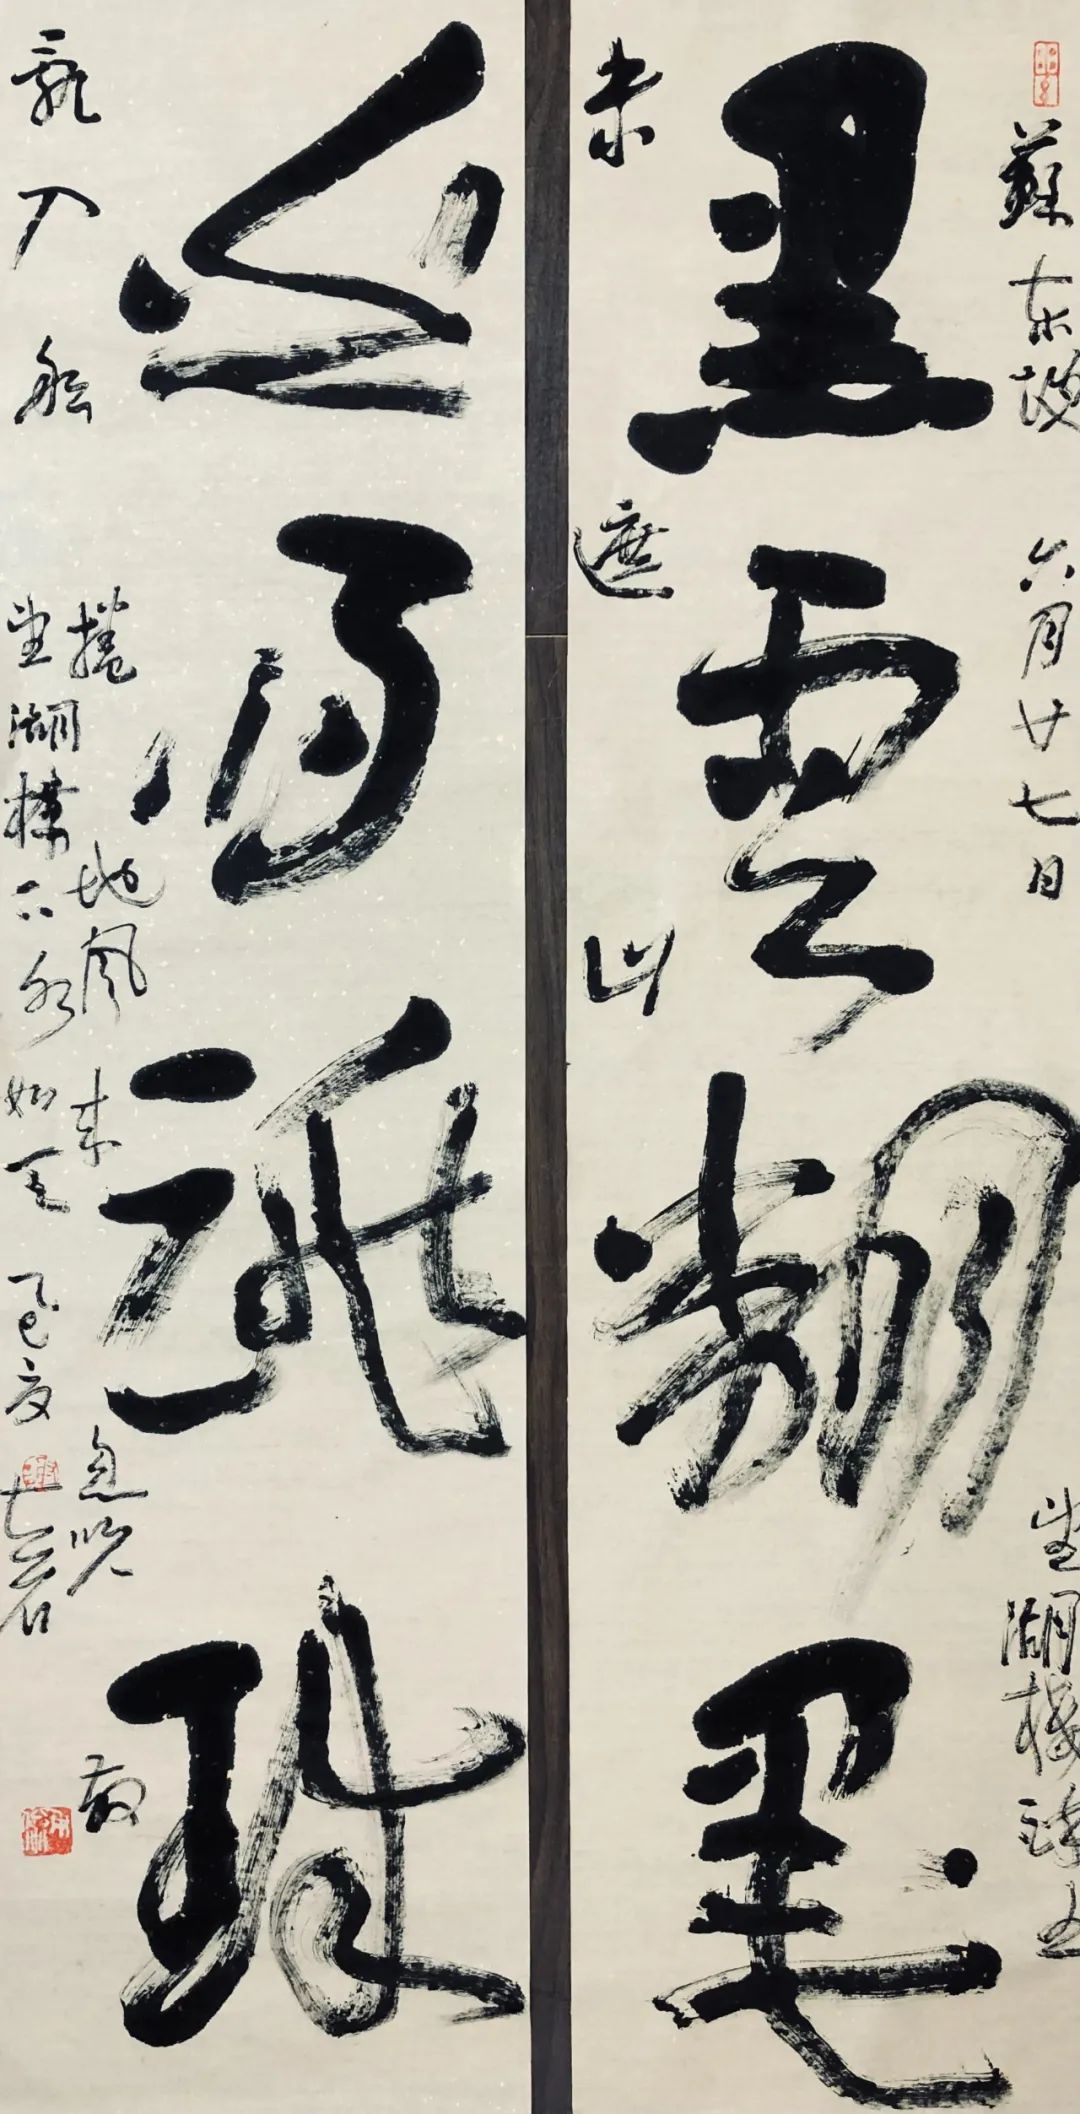 蘇东坡 六月廿七日 望湖樓醉书
黑雲翻墨
未遮山
白雨跳珠
亂入船
捲地風来忽吹散
望湖樓下水如天 乙巳夏